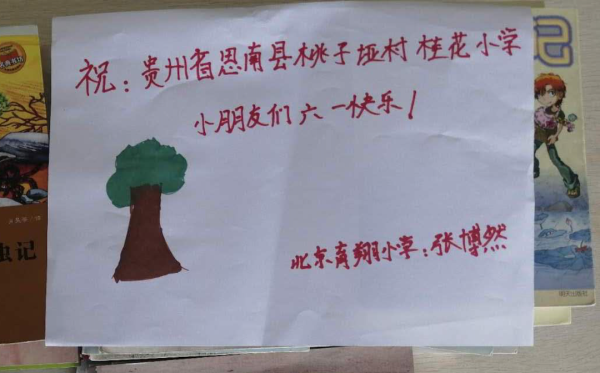 祝：贵州省恩南县桃子垭村桂花小学
小朋友们六一快乐！
北京育翔小学：张博然
虫记